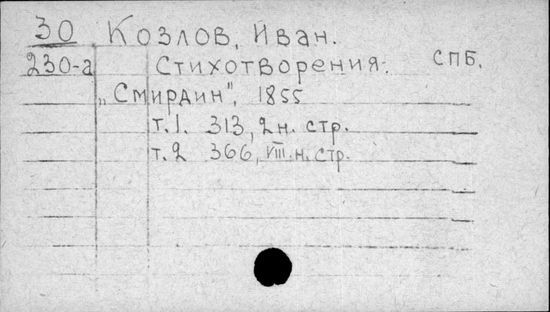 30 Козлов, Иван.
230-а Стихотворения. СПБ.
„Смирдин", 1855
т.1. 313, 2н. стр.
т.2 366, VIII.н.стр.